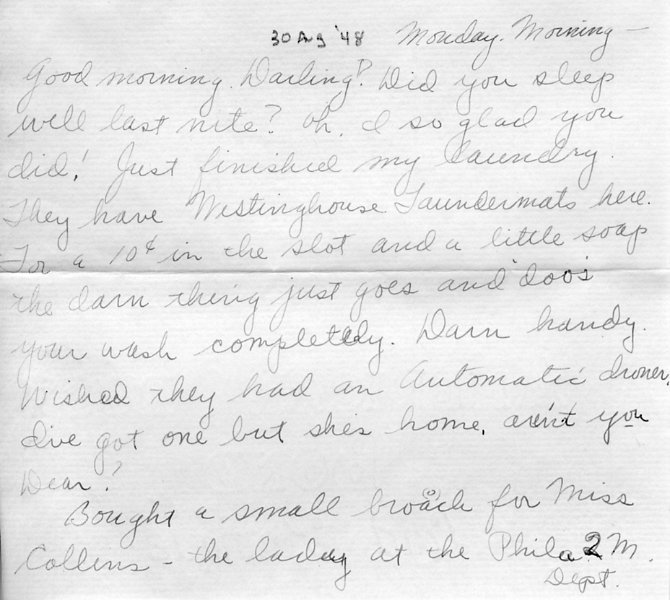 30 Aug '48 Monday. Morning —
Good morning. Darling!? Did you sleep
well last nite? Oh, I so glad you
did! Just finished my laundry.
They have Westinghouse Laundermats here.
For a 10¢ in the slot and a little soap
the darn thing just goes and "doos"
your wash completely. Darn handy.
Wished they had an Automatic ironer,
I've got one but she's home, aren't you
Dear?
Bought a small broach for Miss
Collins – the laday at the Phila. 2 M.
Dept.